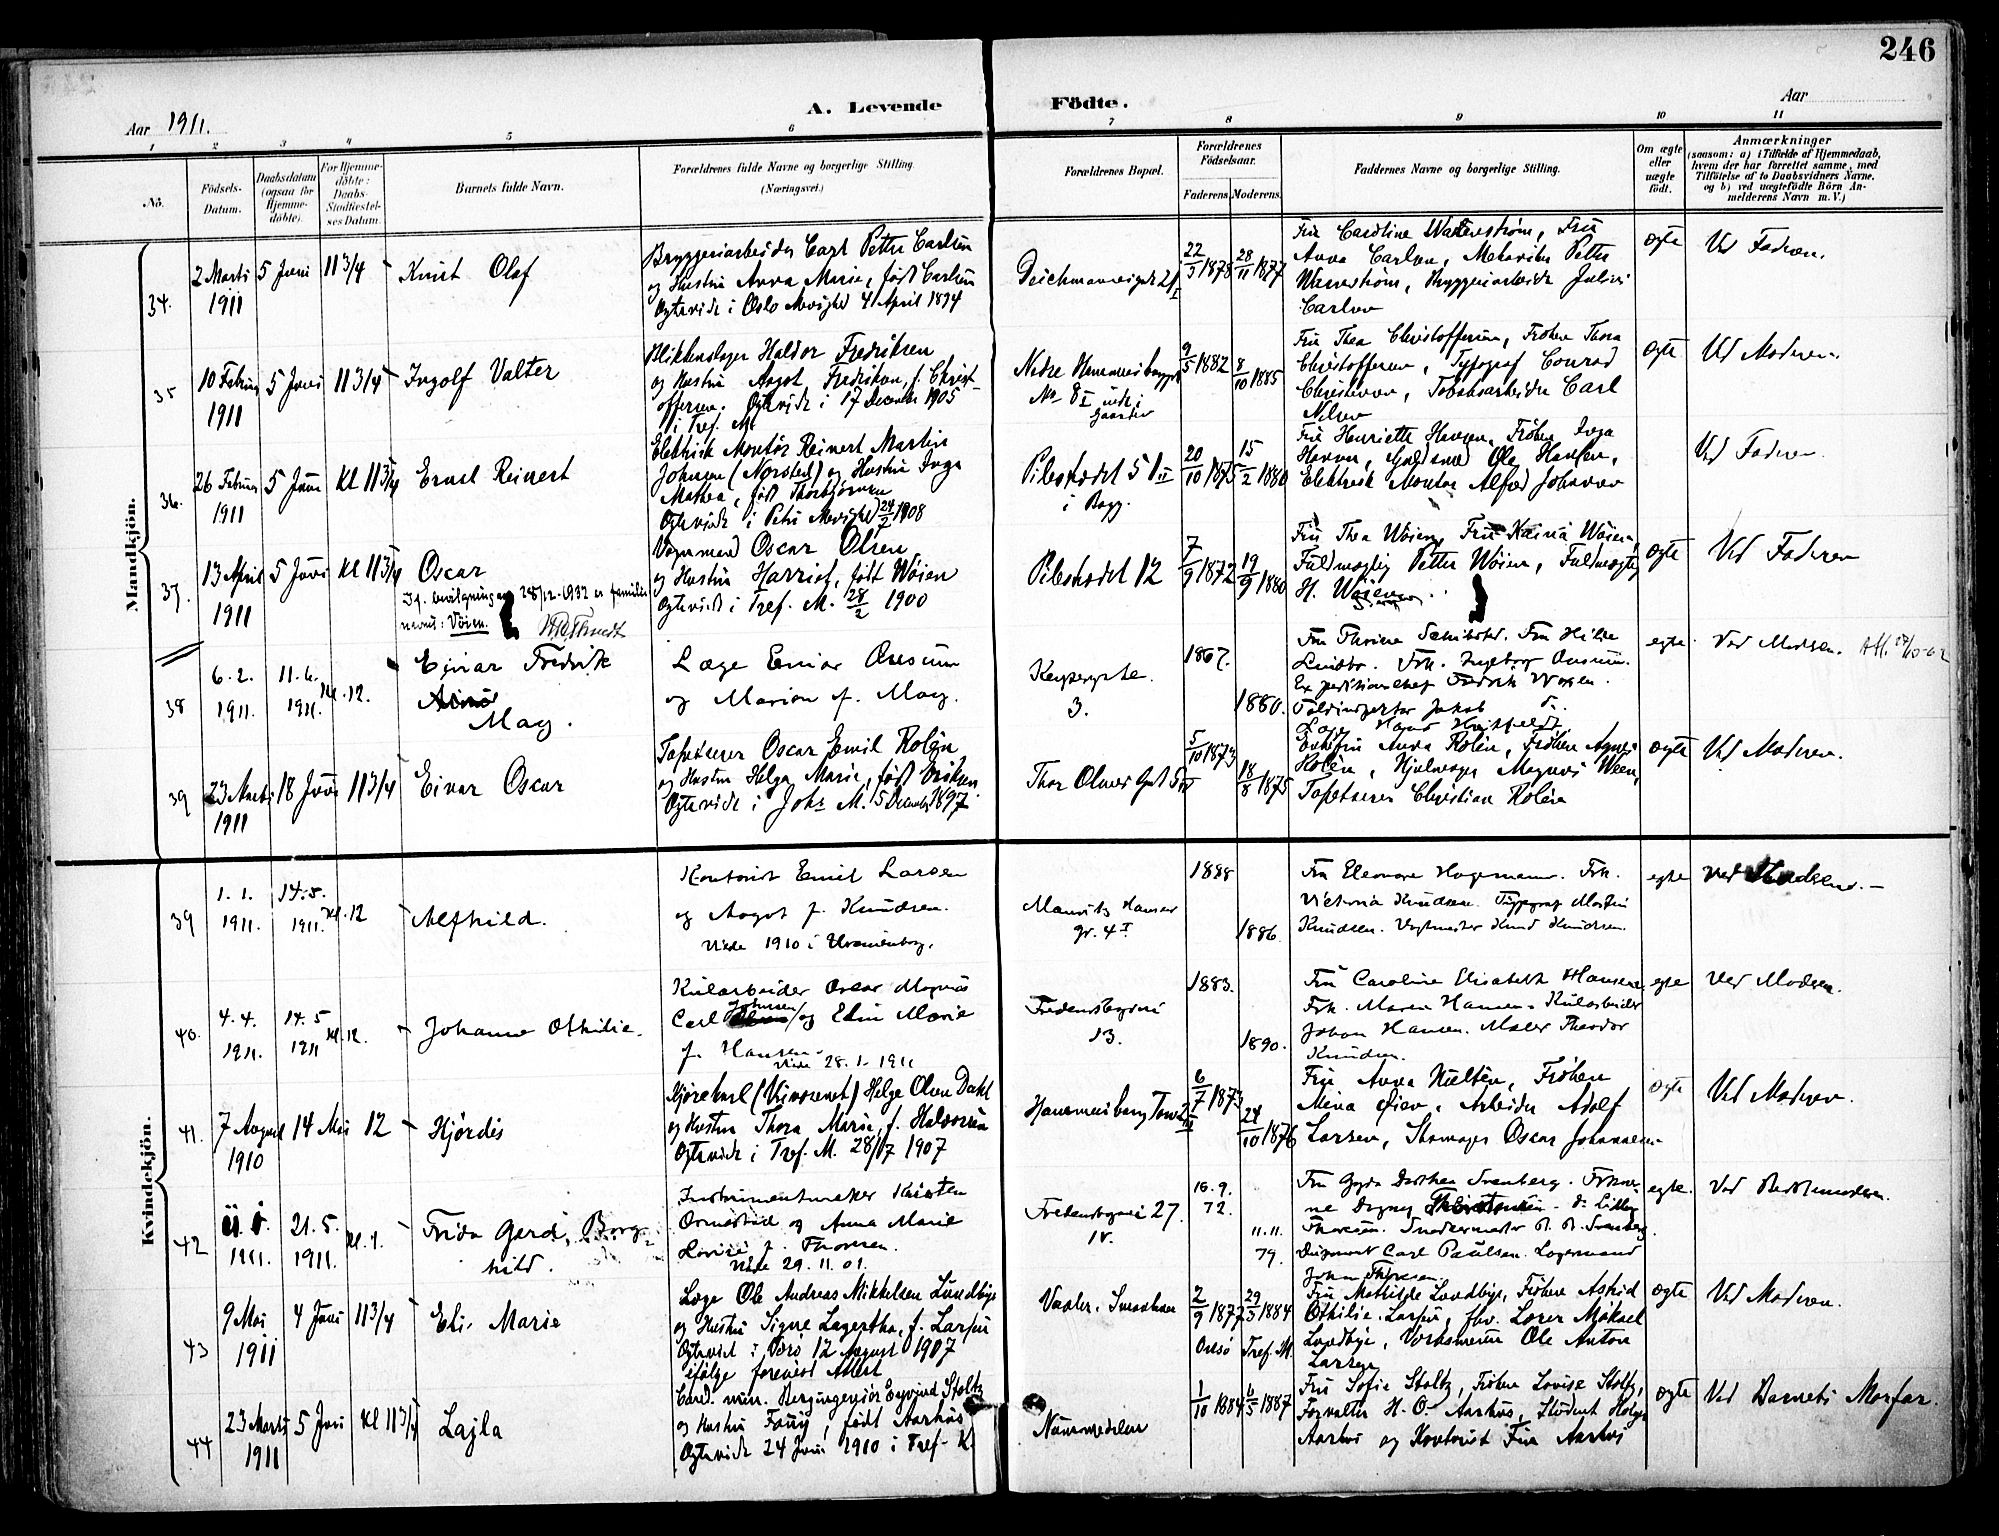 246
A. Levende Födte.
Aar 1911.
Aar
1 2 3 4 5 6 7 8 9 10 11
No.
Födsels-Datum.
Daabsdatum (ogsaa for Hjemmedöbte).
For Hjemmedöbte: Daabs Stadfæstelses Datum.
Barnets fulde Navn.
Forældrenes fulde Navne og borgerlige Stilling. (Næringsvei.)
Forældrenes Bopæl.
Forældrenes Födselsaar.
Faderens. Moderens.
Faddernes Navne og borgerlige Stilling.
Om ægte eller uægte født.
Anmærkninger
(saasom: a) i Tilfælde af Hjemmedaab, hvem der har forrettet samme, med Tilföielse af to Daabsvidners Navne, og b) ved uægtefödte Börn Anmelderens Navn m. V.)
Mandkjön.
34.
2 Marts 1911
5 Juni
11 3/4
Knut Olaf
Bryggeriarbeider Carl Petter Carlsen
og Hustru Anna Marie, født Carlsen
Ægteviede i Oslo Menighed 4 April 1894
22/3 1878
28/11 1877
Fru Caroline Wennestrøm, Fru
Anna Carlsen, Petter
Wennestrøm, Bryggeriarbeider Julius
Carlsen
ægte
Ved Faderen.
35
10 Februar 1911
5 Juni
11 3/4
Ingolf Valter
Blikkenslager Haldor Fredriksen
og Hustru Aagot Fredriksen, f. Christ-
offersen. Ægteviede i 17 December 1905
i Tref. M.
Nedre Hammersborggt
No 8 I inde i
Gaarden
9/5 1882
8/10 1885
Fru Thea Christoffersen, Frøken Thora
Christoffersen, Typograf Conrad
Christensen, Tobaksarbeider Carl
Nilsen
ægte
Ved Moderen.
36.
26 Februar 1911
5 Juni
Kl 11 3/4
Ernst Reinert
Elektrisk Montør Reinert Martin
Johnsen (Norsted) og Hustru Inga
Mathea, født Thorbjørnsen
Ægteviede i Petri Menighed 24/2 1908
Pilestrædet 51 II
i Bagg.
20/10 1875
15/2 1880
Fru Henriette Hansen, Frøken Inga
Hansen, Guldsmed Ole Hansen,
Elektrisk Montør Alfred Johansen
Ved Faderen.
37.
13 April 1911
5 Juni
Kl 11 3/4
Oscar
If. bevilgning av 28/12-1932 er familie
navnet: Vøien.
Vognmand Oscar Olsen
og Hustru Harriet, født Wøien
Ægteviede i Tref. M. 28/2 1900
Pilestrædet 12
7/9 1872
19/9 1880
Fru Thea Wøien, Fru Kaina Wøien,
Fuldmægtig Petter Wøien, Fuldmægtig
H. Wøien
ægte
Ved Faderen
38
6.2. 1911.
11.6. 1911.
Kl. 12.
Einar Fredrik
May.
Læge Einar Onsum
og Marion f. May.
Keysersgate
3.
1867.
1880.
Fru Thrine Schibsted. Fru Hilda
Lindbo. Frk. Ingeborg Onsum.
Expeditionschef Fredrik Woxen.
Toldinspektør Jakob
Læge Hans Huitfeldt
egte
Ved Moderen.
39
23 Marts 1911
18 Juni
11 3/4
Einar Oscar
Tapetserer Oscar Emil Rolén
og Hustru Helga Marie, født Eriksen
Ægteviede i Johs M. 5 December 1897
Thor Olsens Gt 5
5/10 1873
18/8 1875
Enkefru Anna Rolén, Frøken Agnes
Rolén, Hjulmager Magnus Ween,
Tapetserer Christian Rolén
ægte
Ved Moderen.
Kvindekjön.
39
1.1. 1911.
14.5. 1911.
Kl. 12
Alfhild.
Kontorist Emil Larsen
og Aagot f. Knudsen.
Viede 1910 i Uranienborg.
Mauritz Hansens
gt. 4 I
1888
1886.
Fru Eleonore Hagemann. Frk.
Victoria Knudsen. Typograf Martin
Knudsen. Vagtmester Knud Knudsen.
egte
Ved Moderen.
40.
4.4. 1911.
14.5 1911
Kl. 12.
Johanne Othilie.
Kularbeider Oscar Magnus
Carl Johnsen og Elin Marie
f. Hansen.
Viede 28.1.1911
Fredensborgvei
13.
1883.
1890.
Fru Caroline Elisabeth Hansen
Frk. Maren Hansen. Kularbeider
Johan Hansen. Maler Theodor
Knudsen.
egte
Ved Moderen.
41.
7 August 1910
14 Mai
12
Hjørdis
Kjørekarl (Vinosenet) Helge Olsen Dahl
og Hustru Thora Marie, f. Halvorsen
Ægteviede i Tref. M. 28/7 1907
6/7 1873
24/10 1876
Fru Anna Hultén, Frøken
Mina Arbeider Adolf
Larsen, Skomager Oscar Johannesen
ægte
Ved Moderen.
42
1911.
21.5. 1911.
Kl. 1.
Frida Gerd. Borg-
hild.
Instrumentmaker Kristen
Ormestad og Anna Marie
Lovise f. Thoresen.
Viede 29.11.01.
Fredensborgvei 27.
IV.
16.9. 72.
11.11. 79.
Fru Gyda Dorthea Svenberg. Frøkne-
ne Dagny do Lilly
Thoresen. Snedkermester Svenberg
Carl Paulsen. Lagermand
Johan Thoresen.
egte.
Ved Bedstemoderen.
43
9 Mai 1911
4 Juni
11 3/4
Eli. Marie
Læge Ole Andreas Mikkelsen Lundbye
og Hustru Signe Lagertha, f. Larsen
Ægteviet i Vors 12 August 1907
ifølge forevist Attest
2/9 1872
29/3 1884
Onsø
Tref. M.
Fru Mathilde Lundbye, Frøken Astrid
Othilie Larsen, fhv. Lærer Mikael
Lundbye, Ole Anton
Larsen
ægte
Ved Moderen.
44
23 Marts 1911
5 Juni
Kl 11 3/4
Lajla
Cand. min. Bergingeniør Eyvind Stoltz
og Hustru Fanny, født Aarhus
Ægteviede 24 Juni 1910 i Tref. K.
Nummedalen
1/10 1884
6/5 1887
Fru Sofie Stoltz, Frøken Lovise Stoltz,
Forvalter H. O. Aarhus, Student Holger
Aarhus og Kontorist Finn Aarhus
ægte
Ved Barnets Morfar.